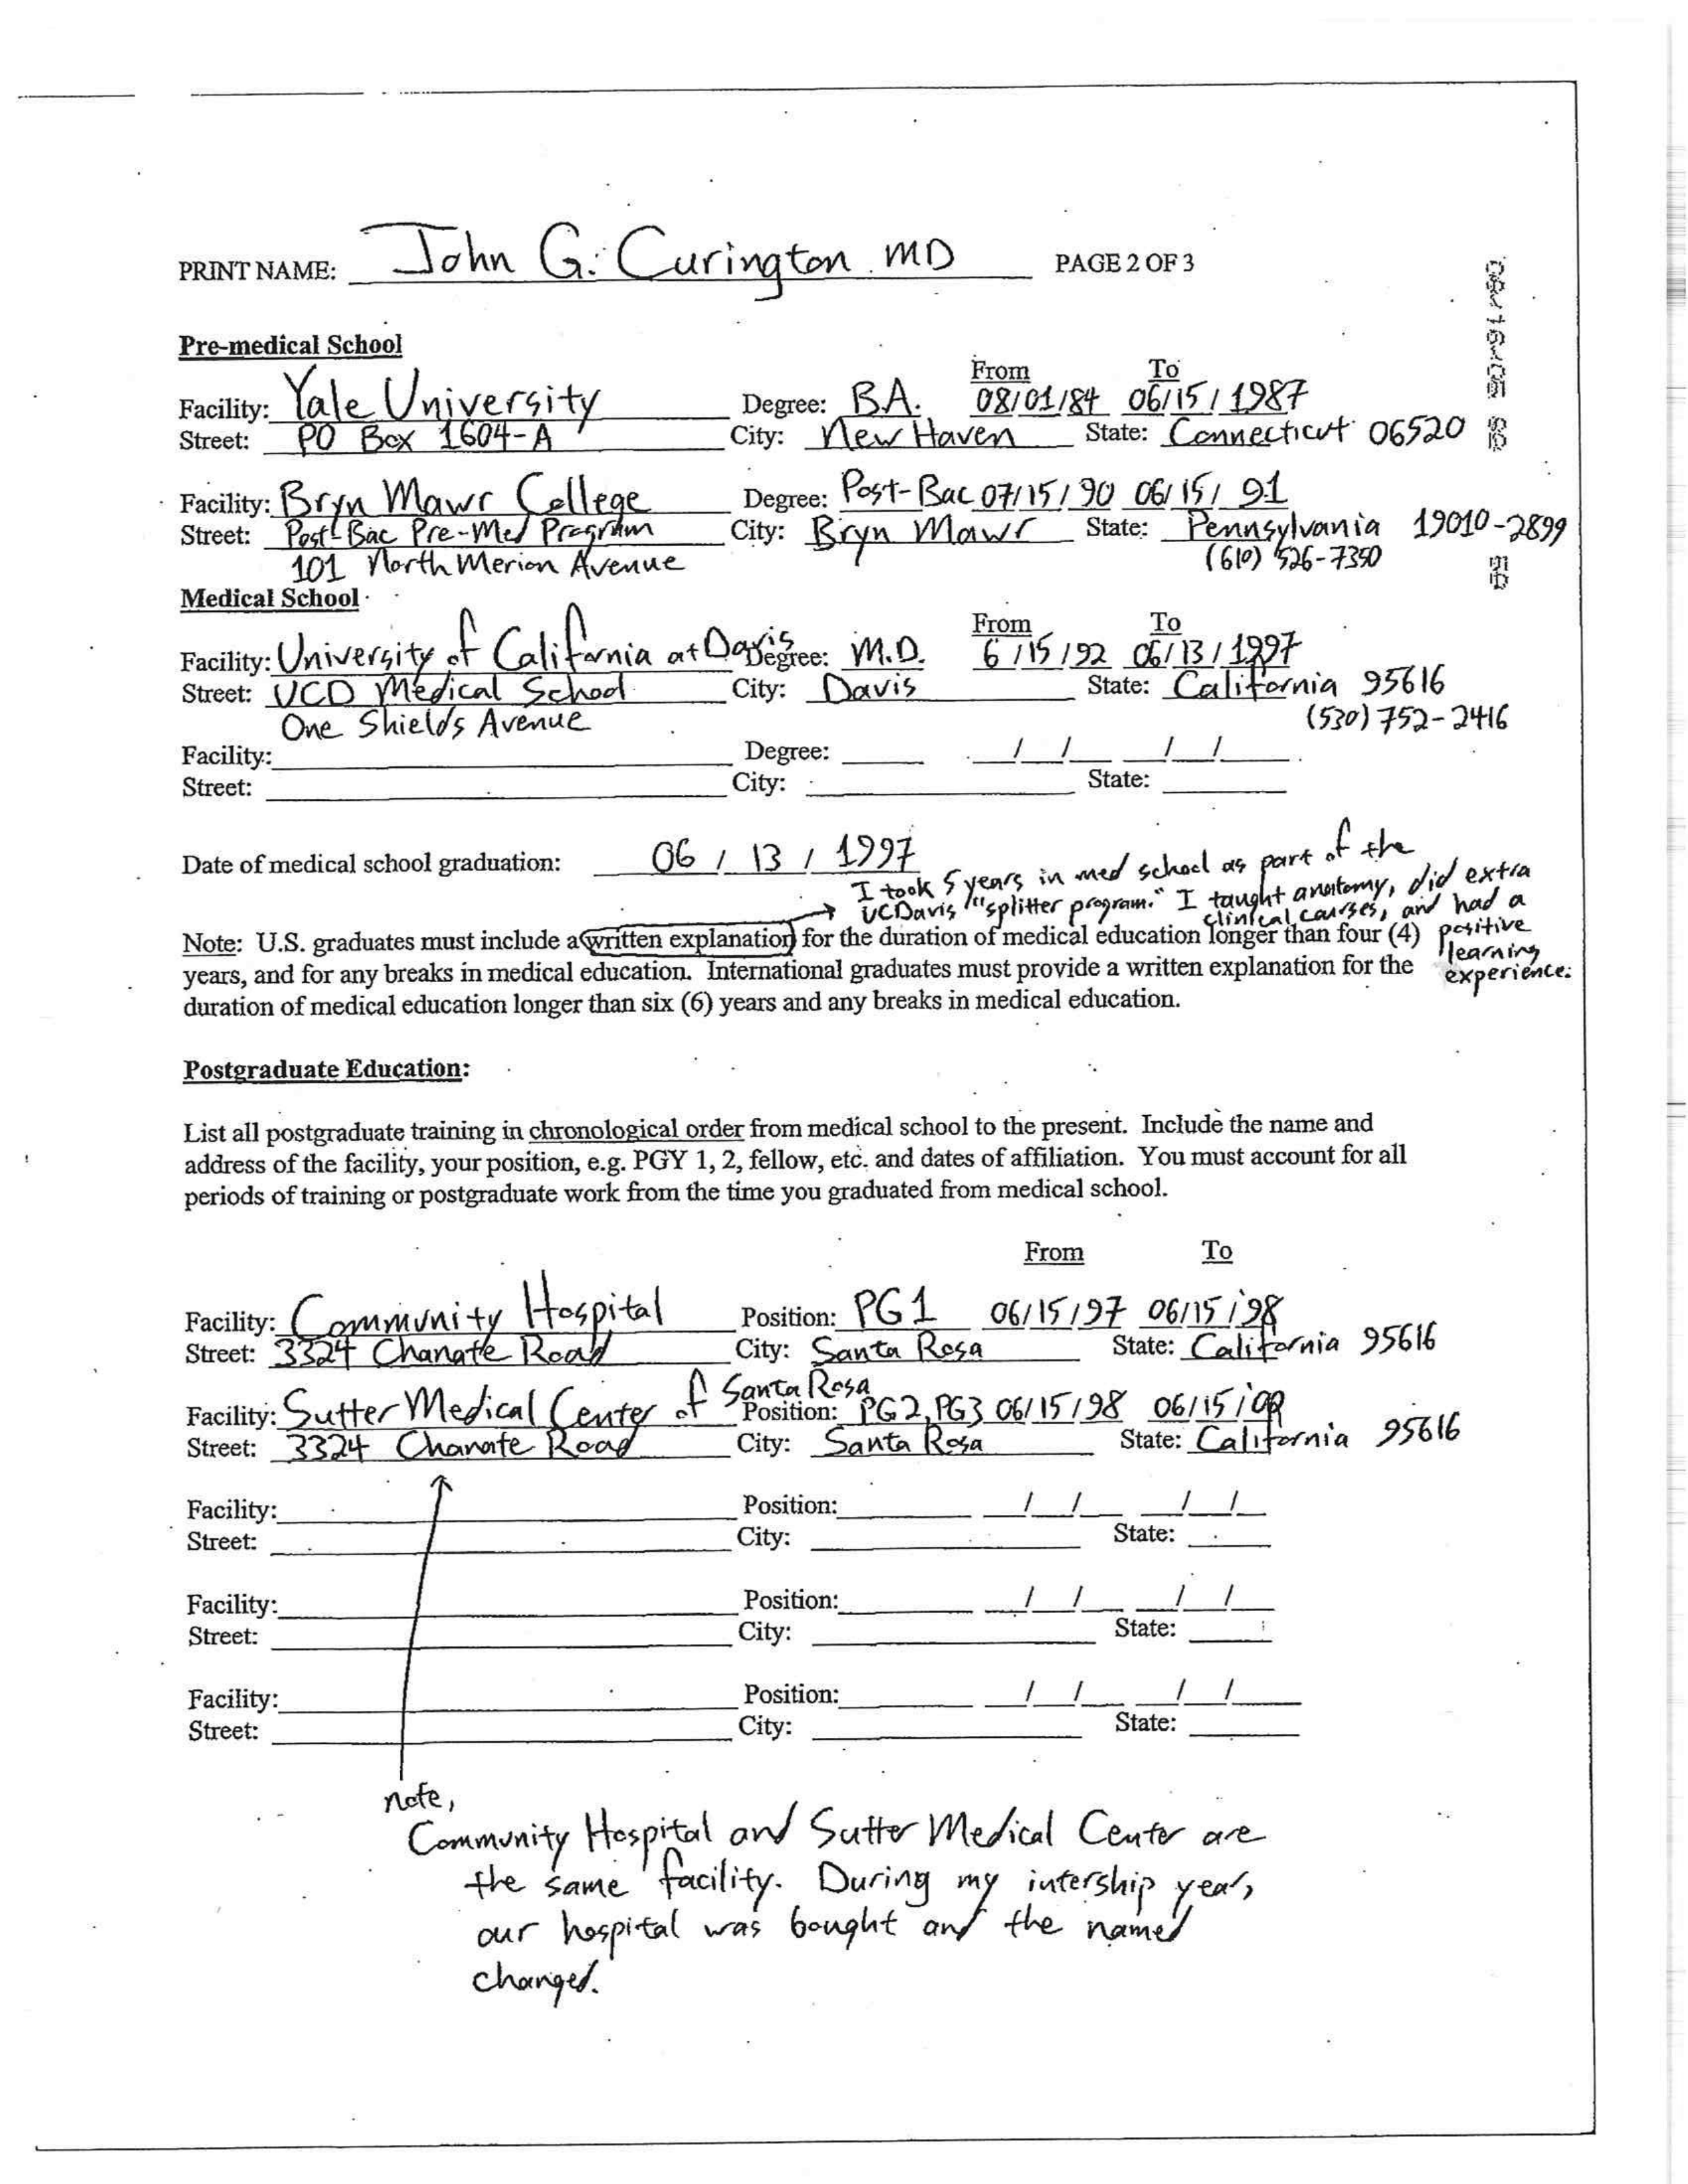 PRINT NAME: John G. Curington MD PAGE 2 OF 3
Pre-medical School
From To
Facility: Yale University Degree: B.A. 08/01/84 06/15/1987
Street: PO Box 1604-A City: New Haven State: Connecticut 06520
Facility: Bryn Mawr College Degree: Post-Bac 07/15/90 06/15/91
Street: Post-Bac Pre-Med Program City: Bryn Mawr State: Pennsylvania 19010-2899
101 North Merion Avenue (610) 526-7350
Medical School
From To
Facility: University of California at Davis Degree: M.D. 6/15/92 06/13/1997
Street: UCD Medical School City: Davis State: California 95616
One Shields Avenue (530) 752-2416
Facility: Degree: / / / /
Street: City: State:
Date of medical school graduation: 06 / 13 / 1997
I took 5 years in med school as part of the
UCDavis "splitter program." I taught anatomy, did extra
clinical courses, and had a
positive
learning
experience.
Note: U.S. graduates must include a written explanation for the duration of medical education longer than four (4)
years, and for any breaks in medical education. International graduates must provide a written explanation for the
duration of medical education longer than six (6) years and any breaks in medical education.
Postgraduate Education:
List all postgraduate training in chronological order from medical school to the present. Include the name and
address of the facility, your position, e.g. PGY 1, 2, fellow, etc. and dates of affiliation. You must account for all
periods of training or postgraduate work from the time you graduated from medical school.
From To
Facility: Community Hospital Position: PG1 06/15/97 06/15/98
Street: 3324 Chanate Road City: Santa Rosa State: California 95616
Facility: Sutter Medical Center of Santa Rosa Position: PG2, PG3 06/15/98 06/15/
Street: 3324 Chanate Road City: Santa Rosa State: California 95616
Facility: Position: / / / /
Street: City: State:
Facility: Position: / / / /
Street: City: State:
Facility: Position: / / / /
Street: City: State:
note,
Community Hospital and Sutter Medical Center are
the same facility. During my intership year,
our hospital was bought and the named
changed.